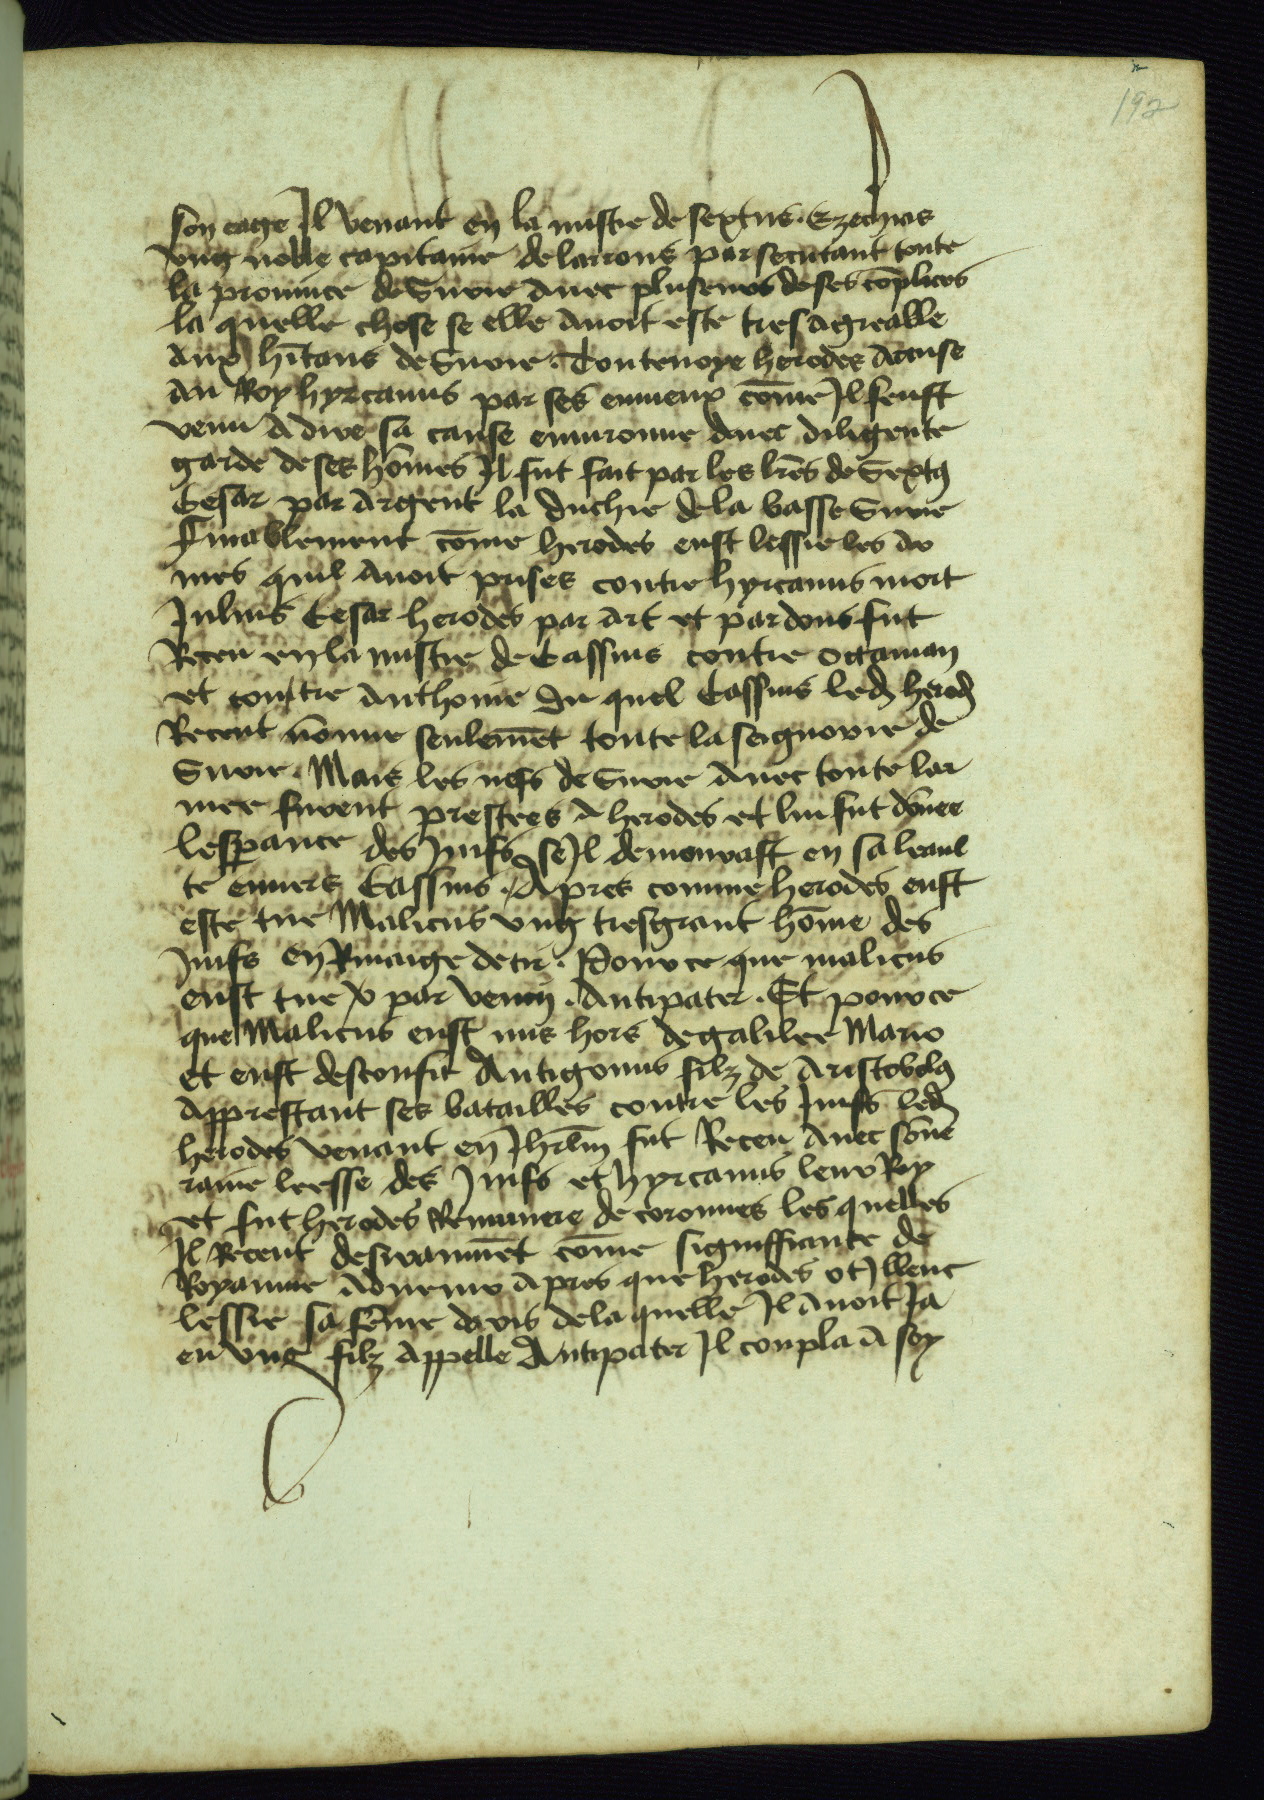 192
son eage Il venant en la mistie de sextus. Ezechias
vng noble capitaine de larrons parsecutant toute
la prouince de Surie auec pluseurs de ses cōplices
la quelle chose se elle auoit este tres agreable
aux hītans de Surie. Toutenoye herodes accuse
au Roy hyrcanus par ses ennieux cōme Il feust
venu a dire sa cause enuironne auec diligente
garde de ses hōmes Il fut fait par les lrēs de Sextꝯ
Cesar par argent la duchie de la basse Surie
Finablement cōme herodes eust lessie les ar
mes quil auoit prises contre hyrcanus mort
Julius Cesar herodes par art et par dons fut
Receu en la mistie de Cassius contre octauian
et contre anthonie du quel Cassius led herod
Receut nōnne seulemēt toute la seignorie de
Surie. Mais les nefs de Surie auec toute lar
mee furent prestees a herodes et lui fut dōnee
lesperance des Juifs se Il demourast en sa leaul
te enuers Cassius. Apres comme herodes eust
este tue Malicus vng tresgrant hōme des
Juifs en Riuaige de tir. Pour ce que malicus
eust tue par venin. Antipater. Et pour ce
que Malicus eust mis hors de galilee Mario
et eust desconfit Antigonus filz de Aristobolꝯ
apprestant ses batailles contre les Juifs led
herodes venant en Jhrlm fut Receu auec souue
raine leesse des Juifs et hyrcanus leur Roy
et fut herodes Remunere de coronnes les quelles
Il Receut desirammēt cōme signiffiante de
Royaume aduenir apres que herodes ot Illenc
lessie sa fēme doris de la quelle Il auoit Ja
eu vng filz appelle Antipater Il coupla a soy